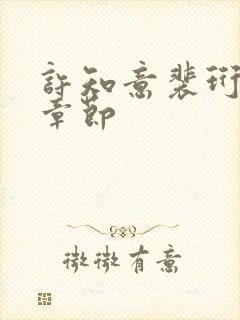 許知意裴珩
章節
微微有意